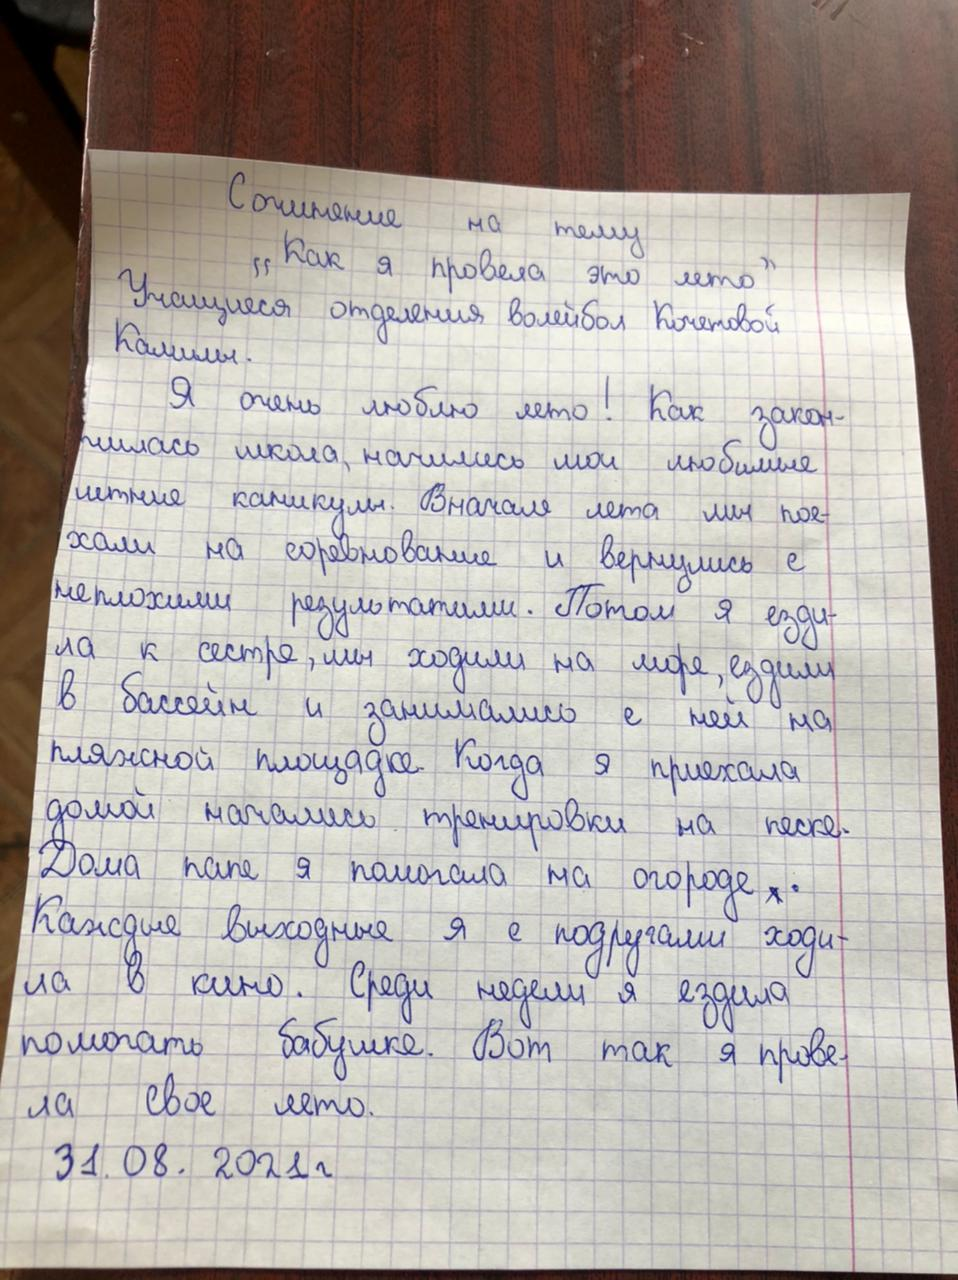 Сочинение на тему
„Как я провела это лето”
Учащиеся отделения волейбол Кочетовой
Камилы.
Я очень люблю лето! Как закон-
чилась школа, начились мои любимые
летние каникулы. Вначале лета мы пое-
хали на соревнование и вернулись с
неплохими результатими. Потом я езди-
ла к сестре, мы ходили на море, ездили
в бассейн и занимались с ней на
пляжной площадке. Когда я приехала
домой начались тренировки на песке.
Дома папе я помогала на огороде.
Каждые выходные я с подругами ходи-
ла в кино. Среди недели я ездила
помогать бабушке. Вот так я прове-
ла свое лето.
31.08.2021г